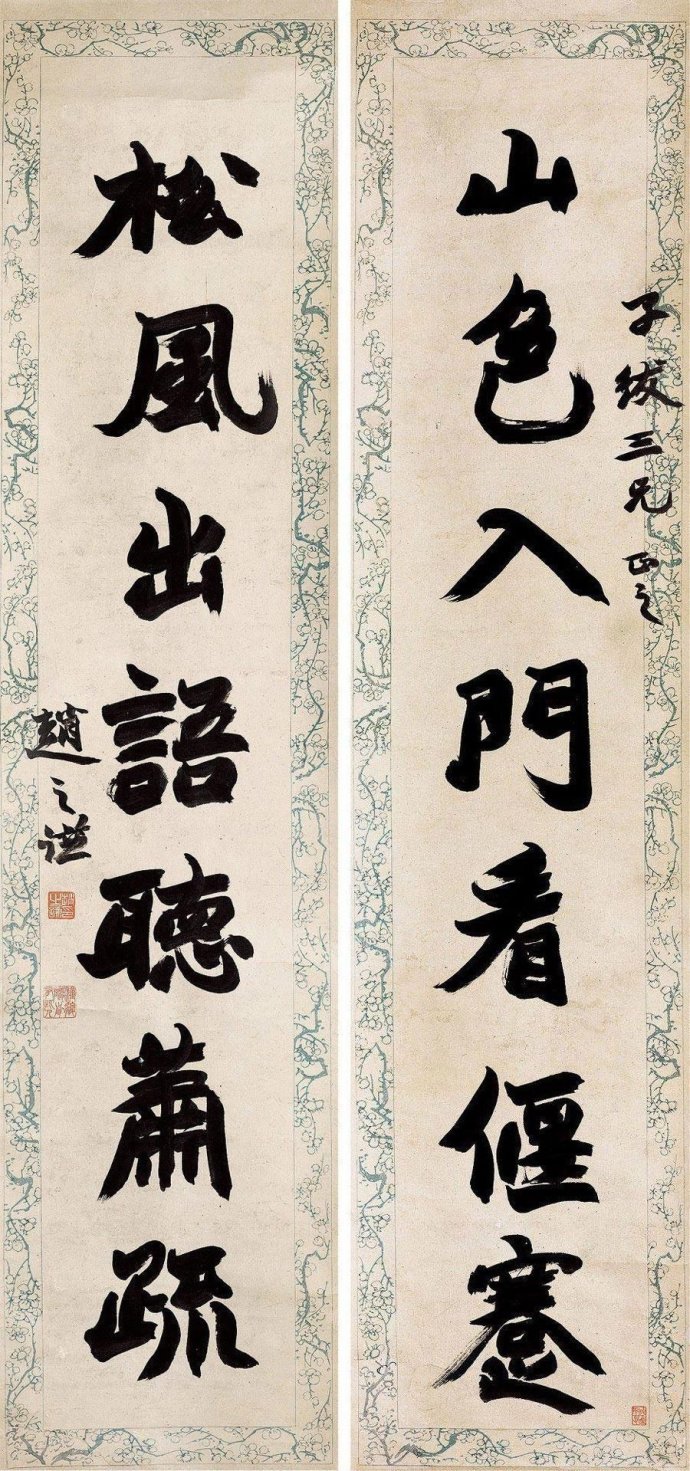 子紱三兄正之
山色入門看偃蹇
松風出語聽蕭疏
趙之謙